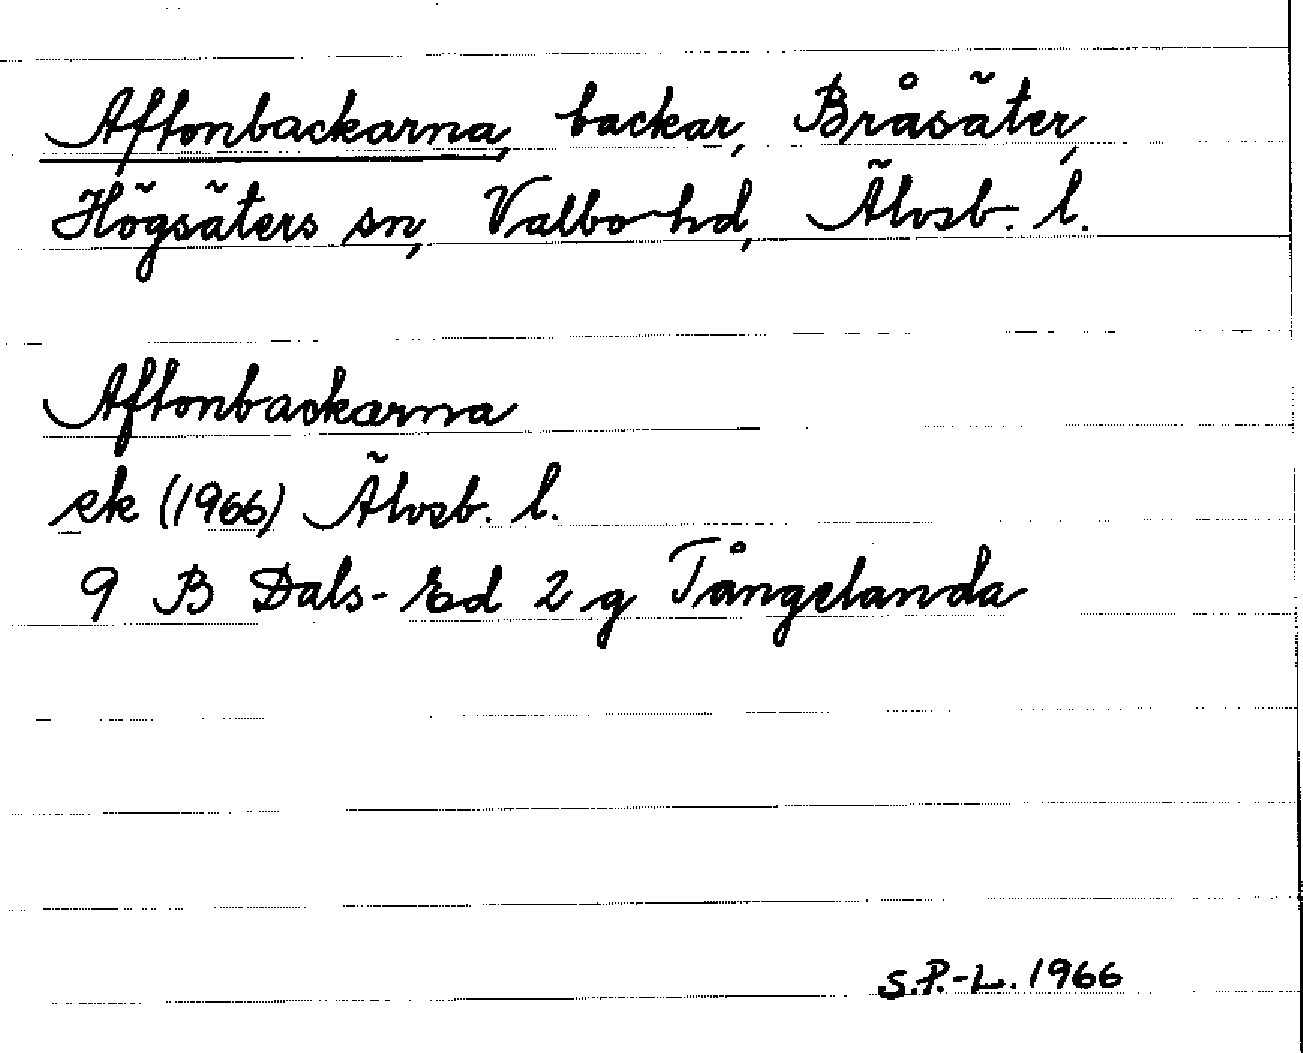 Aftonbackarna, backar, Bråsäter,
Högsäters sn, Valbo hd, Älvsb. l.
Aftonbackarna
ek (1966) Älvsb. l.
9 B Dals-Ed 2 g Tångelanda
S.P.-L. 1966